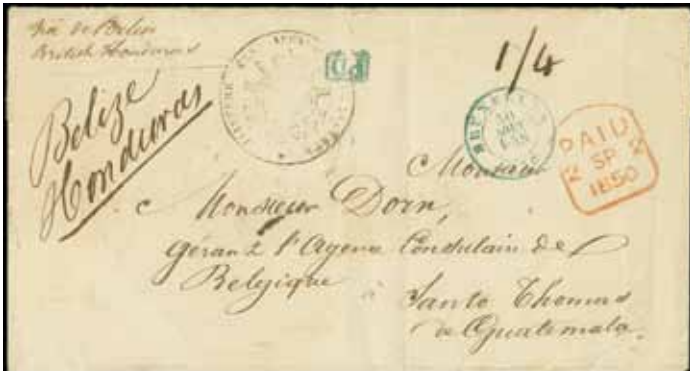 via de Belize
British Honduras
Belize
Honduras
PD
1/4
BRUXELLES
30
PAID
2 SP 2
1850
Monsieur
Monsieur Dorn,
Gérant l'Agence Consulaire de
Belgique à Santo Thomas
de Guatemala.